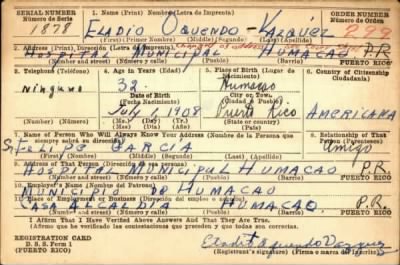 SERIAL NUMBER
Número de Serie
1878
1. Name (Print) Nombre (Imprenta)
ELADIO OQUENDO - VAZQUEZ
(First) (Primer Nombre) (Middle) (Segundo) (Last) (Apellido)
ORDER NUMBER
Número de Orden
299
2. Address (Print) Dirección (Letra de Imprenta)
HOSPITAL MUNICIPAL HUMACAO P.R.
PUERTO RICO
3. Telephone (Teléfono)
Ninguno
(Number) (Número)
4. Age in Years (Edad)
32
Date of Birth
(Fecha Nacimiento)
July 1908
(Mo.) (Day) (Yr.)
(Mes) (Día) (Año)
5. Place of Birth (Lugar de Nacimiento)
Humacao
City or Town
(Ciudad o Pueblo)
Puerto Rico
(State or Country)
6. Country of Citizenship
Ciudadanía
Americana
7. Name of Person Who Will Always Know Your Address (Nombre de la Persona que siempre sabrá su dirección)
Sr. FELIPE GARCIA
(First) (Middle) (Segundo) (Last) (Apellido)
8. Relationship of That Person (Parentesco)
Amigo
9. Address of That Person (Dirección de esa persona)
HOSPITAL MUNICIPAL HUMACAO P.R.
PUERTO RICO
10. Employer's Name (Nombre del Patrono)
MUNICIPIO DE HUMACAO
11. Place of Employment or Business (Dirección del empleo o negocio)
CASA ALCALDIA HUMACAO. P.R.
(Number) (Número) (Town) (Pueblo) PUERTO RICO
I Affirm That I Have Verified Above Answers And That They Are True.
Afirmo que he verificado las contestaciones que preceden y que todas son correctas.
REGISTRATION CARD
D. S. S. Form 1
(Puerto Rico)
Eladio Oquendo Vazquez
(Registrant's signature) (Firma o marca del inscrito)